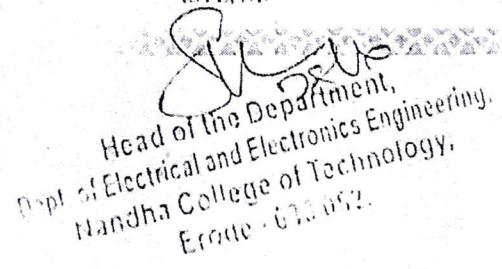 Head of the Department,
Dept. of Electrical and Electronics Engineering,
Nandha College of Technology,
Erode - 052.